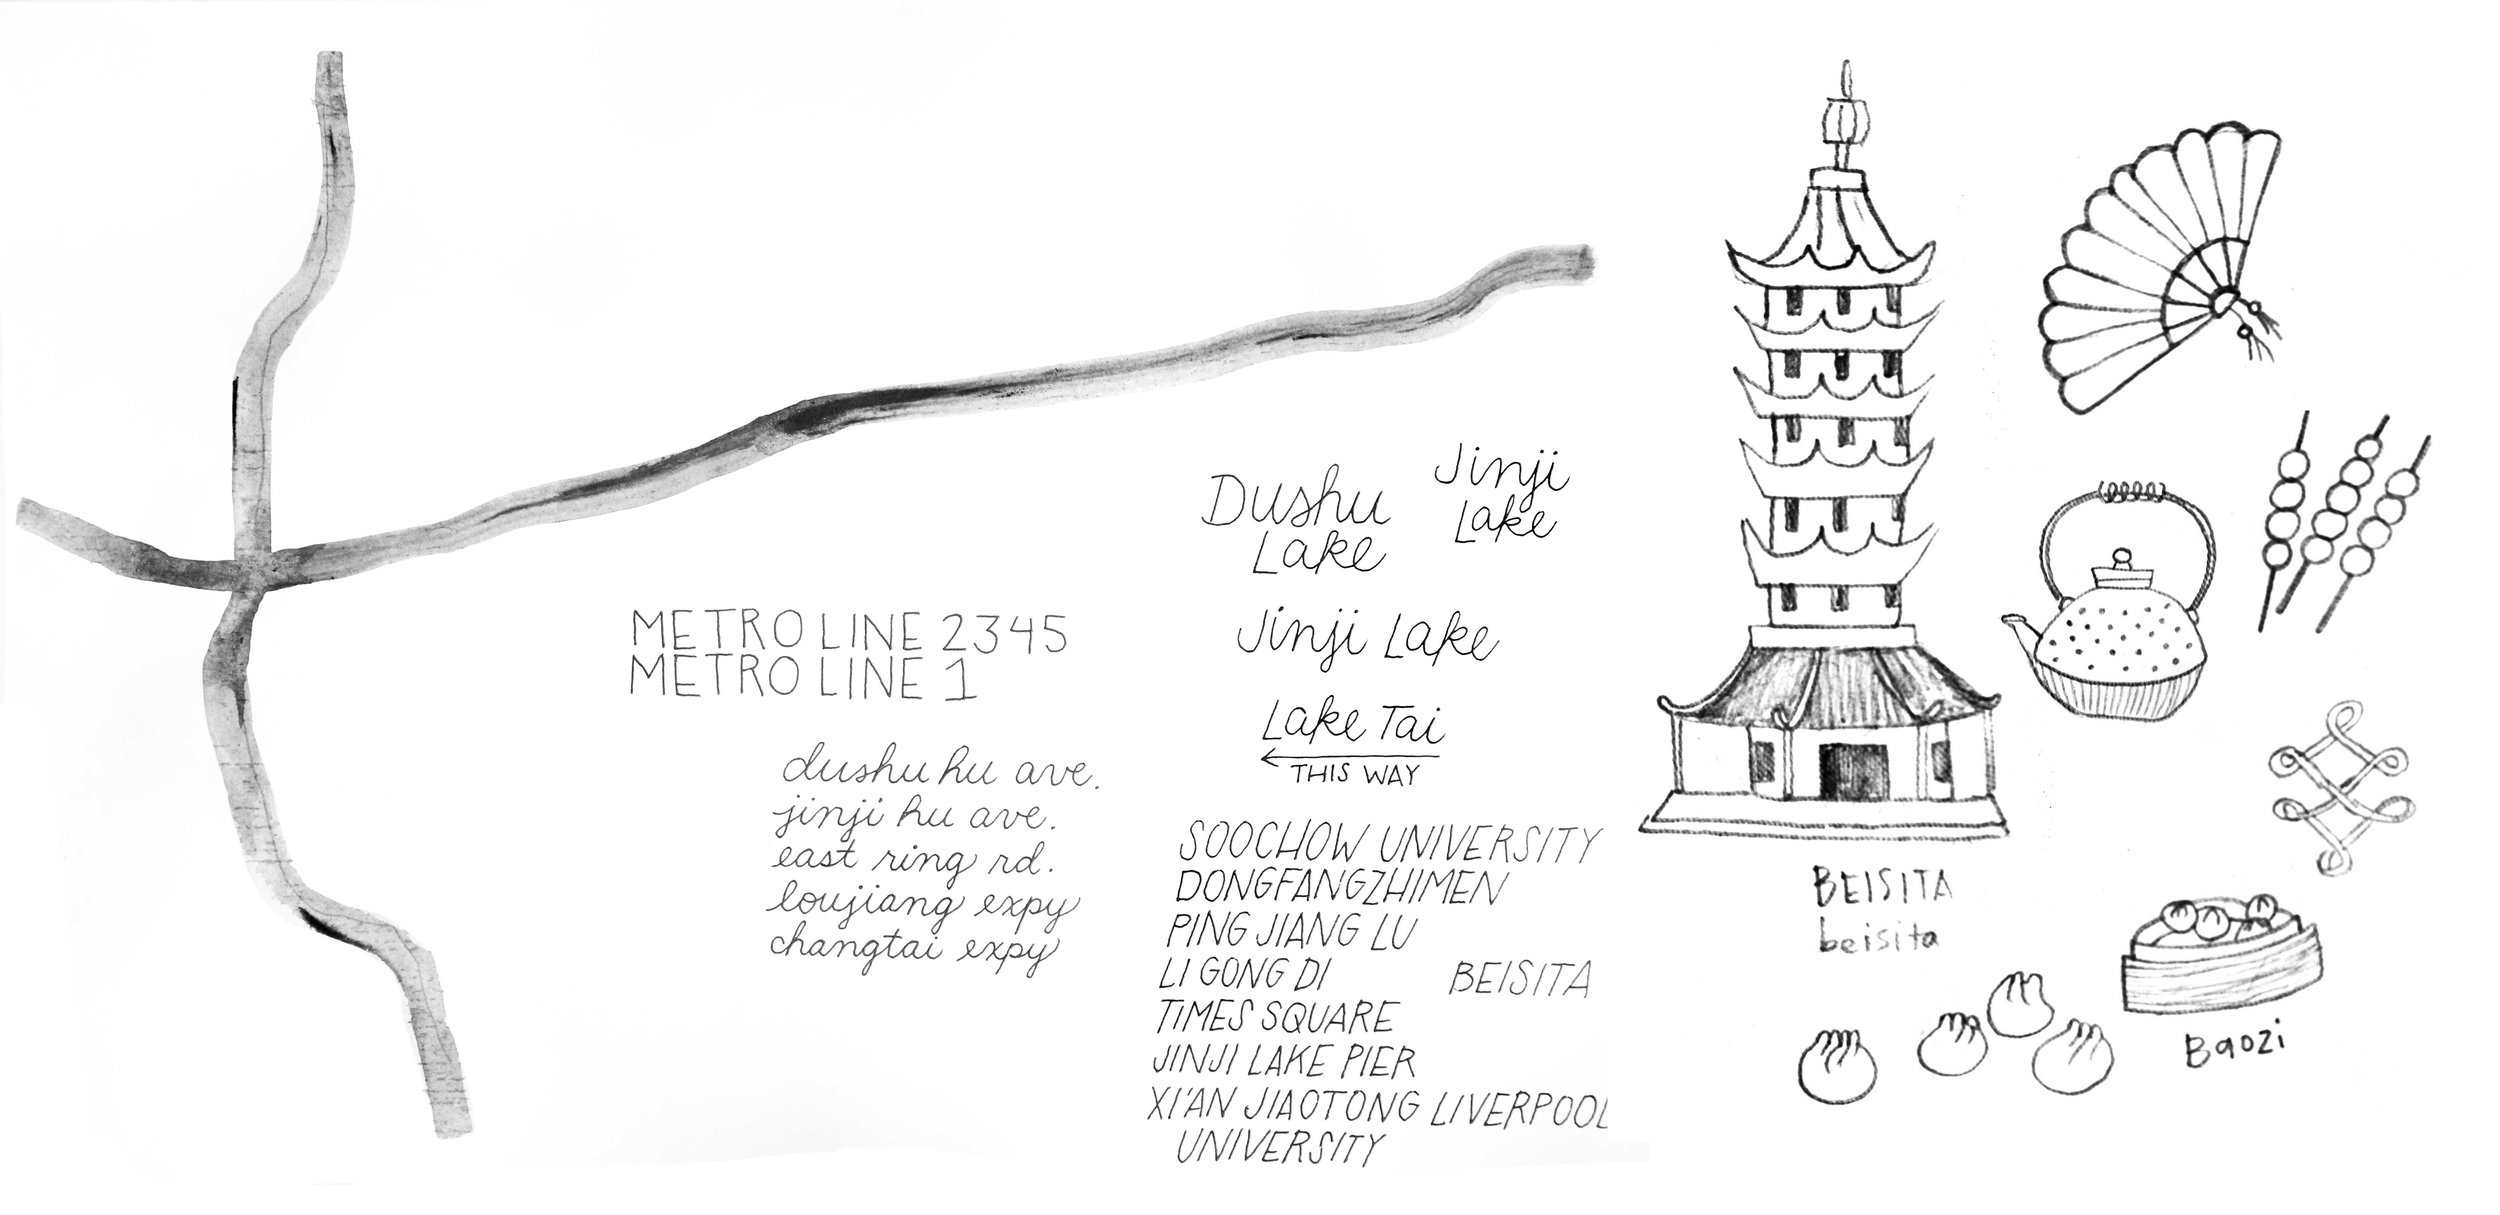 METRO LINE 2345
METRO LINE 1
dushu hu ave.
jinji hu ave.
east ring rd.
loujiang expy
changtai expy
Dushu
Lake
Jinji
Lake
Jinji Lake
Lake Tai
THIS WAY
SOOCHOW UNIVERSITY
DONGFANGZHIMEN
PING JIANG LU
LI GONG DI
BEISITA
TIMES SQUARE
JINJI LAKE PIER
XI'AN JIAOTONG LIVERPOOL
UNIVERSITY
BEISITA
beisita
Baozi